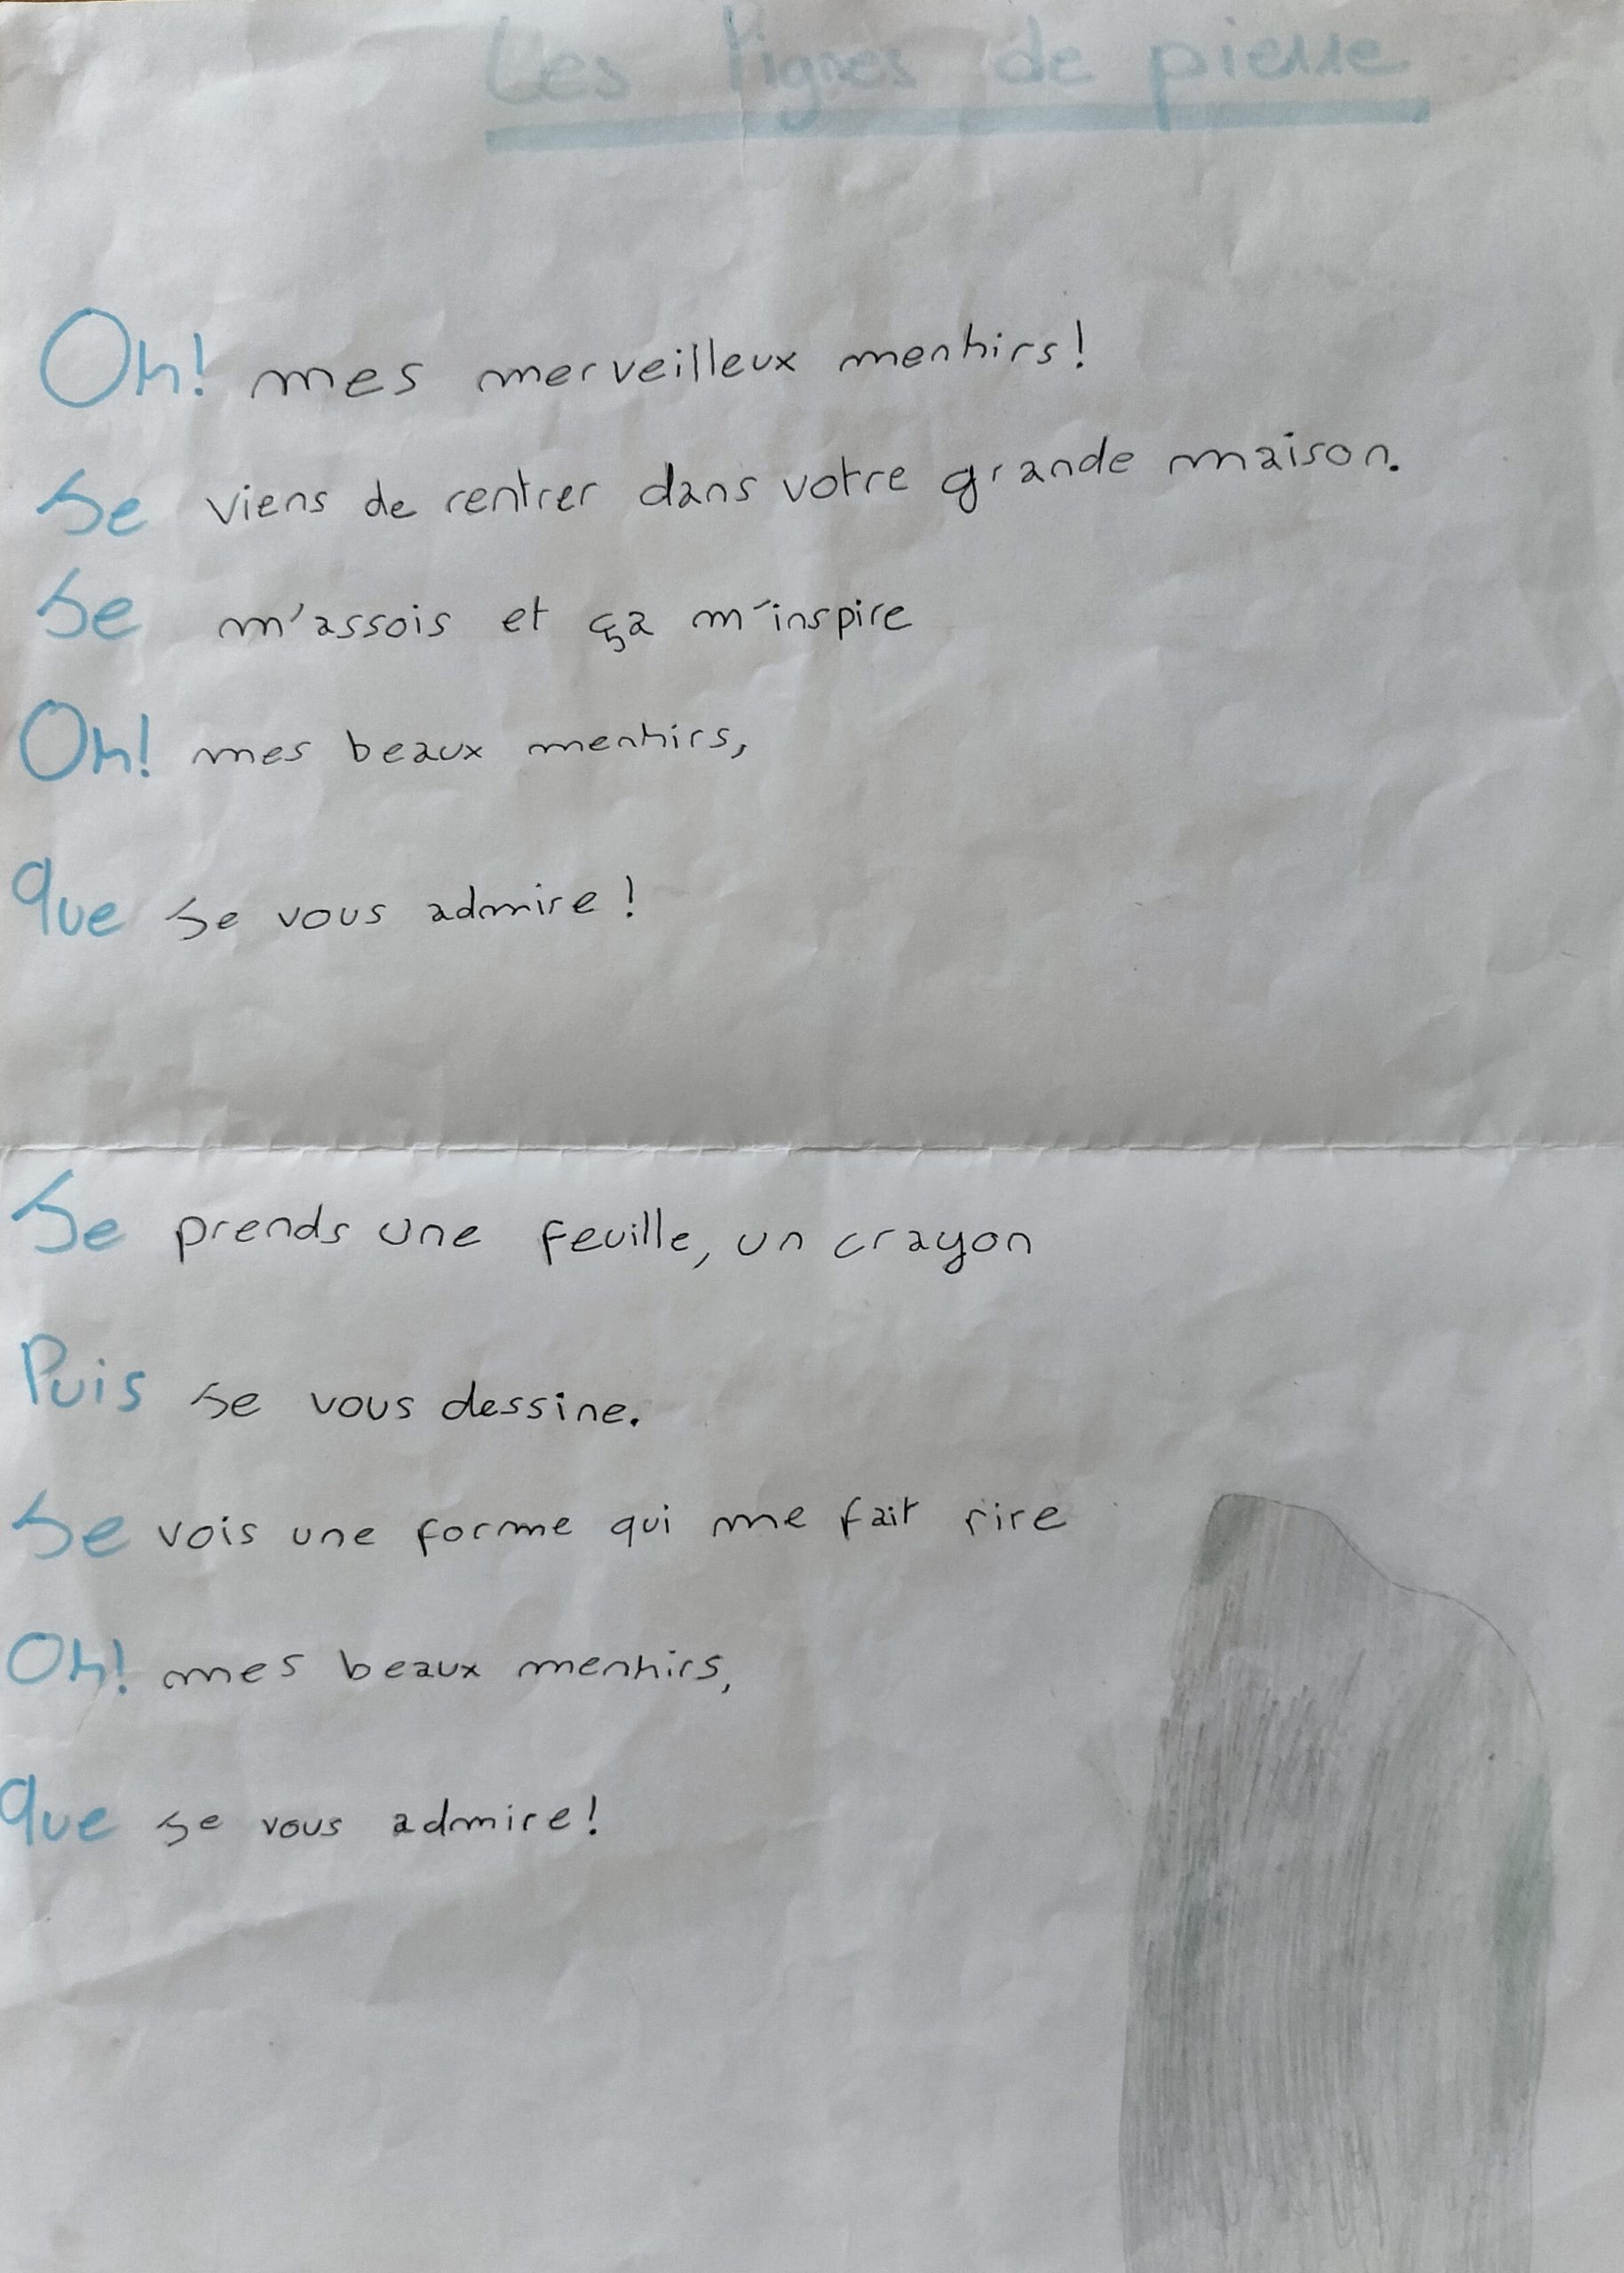 Les lignes de pierre
Oh! mes merveilleux menhirs!
Je viens de rentrer dans votre grande maison.
Je m'assois et ça m'inspire
Oh! mes beaux menhirs,
Que je vous admire!
Je prends une feuille, un crayon
Puis je vous dessine.
Je vois une forme qui me fait rire
Oh! mes beaux menhirs,
Que je vous admire!